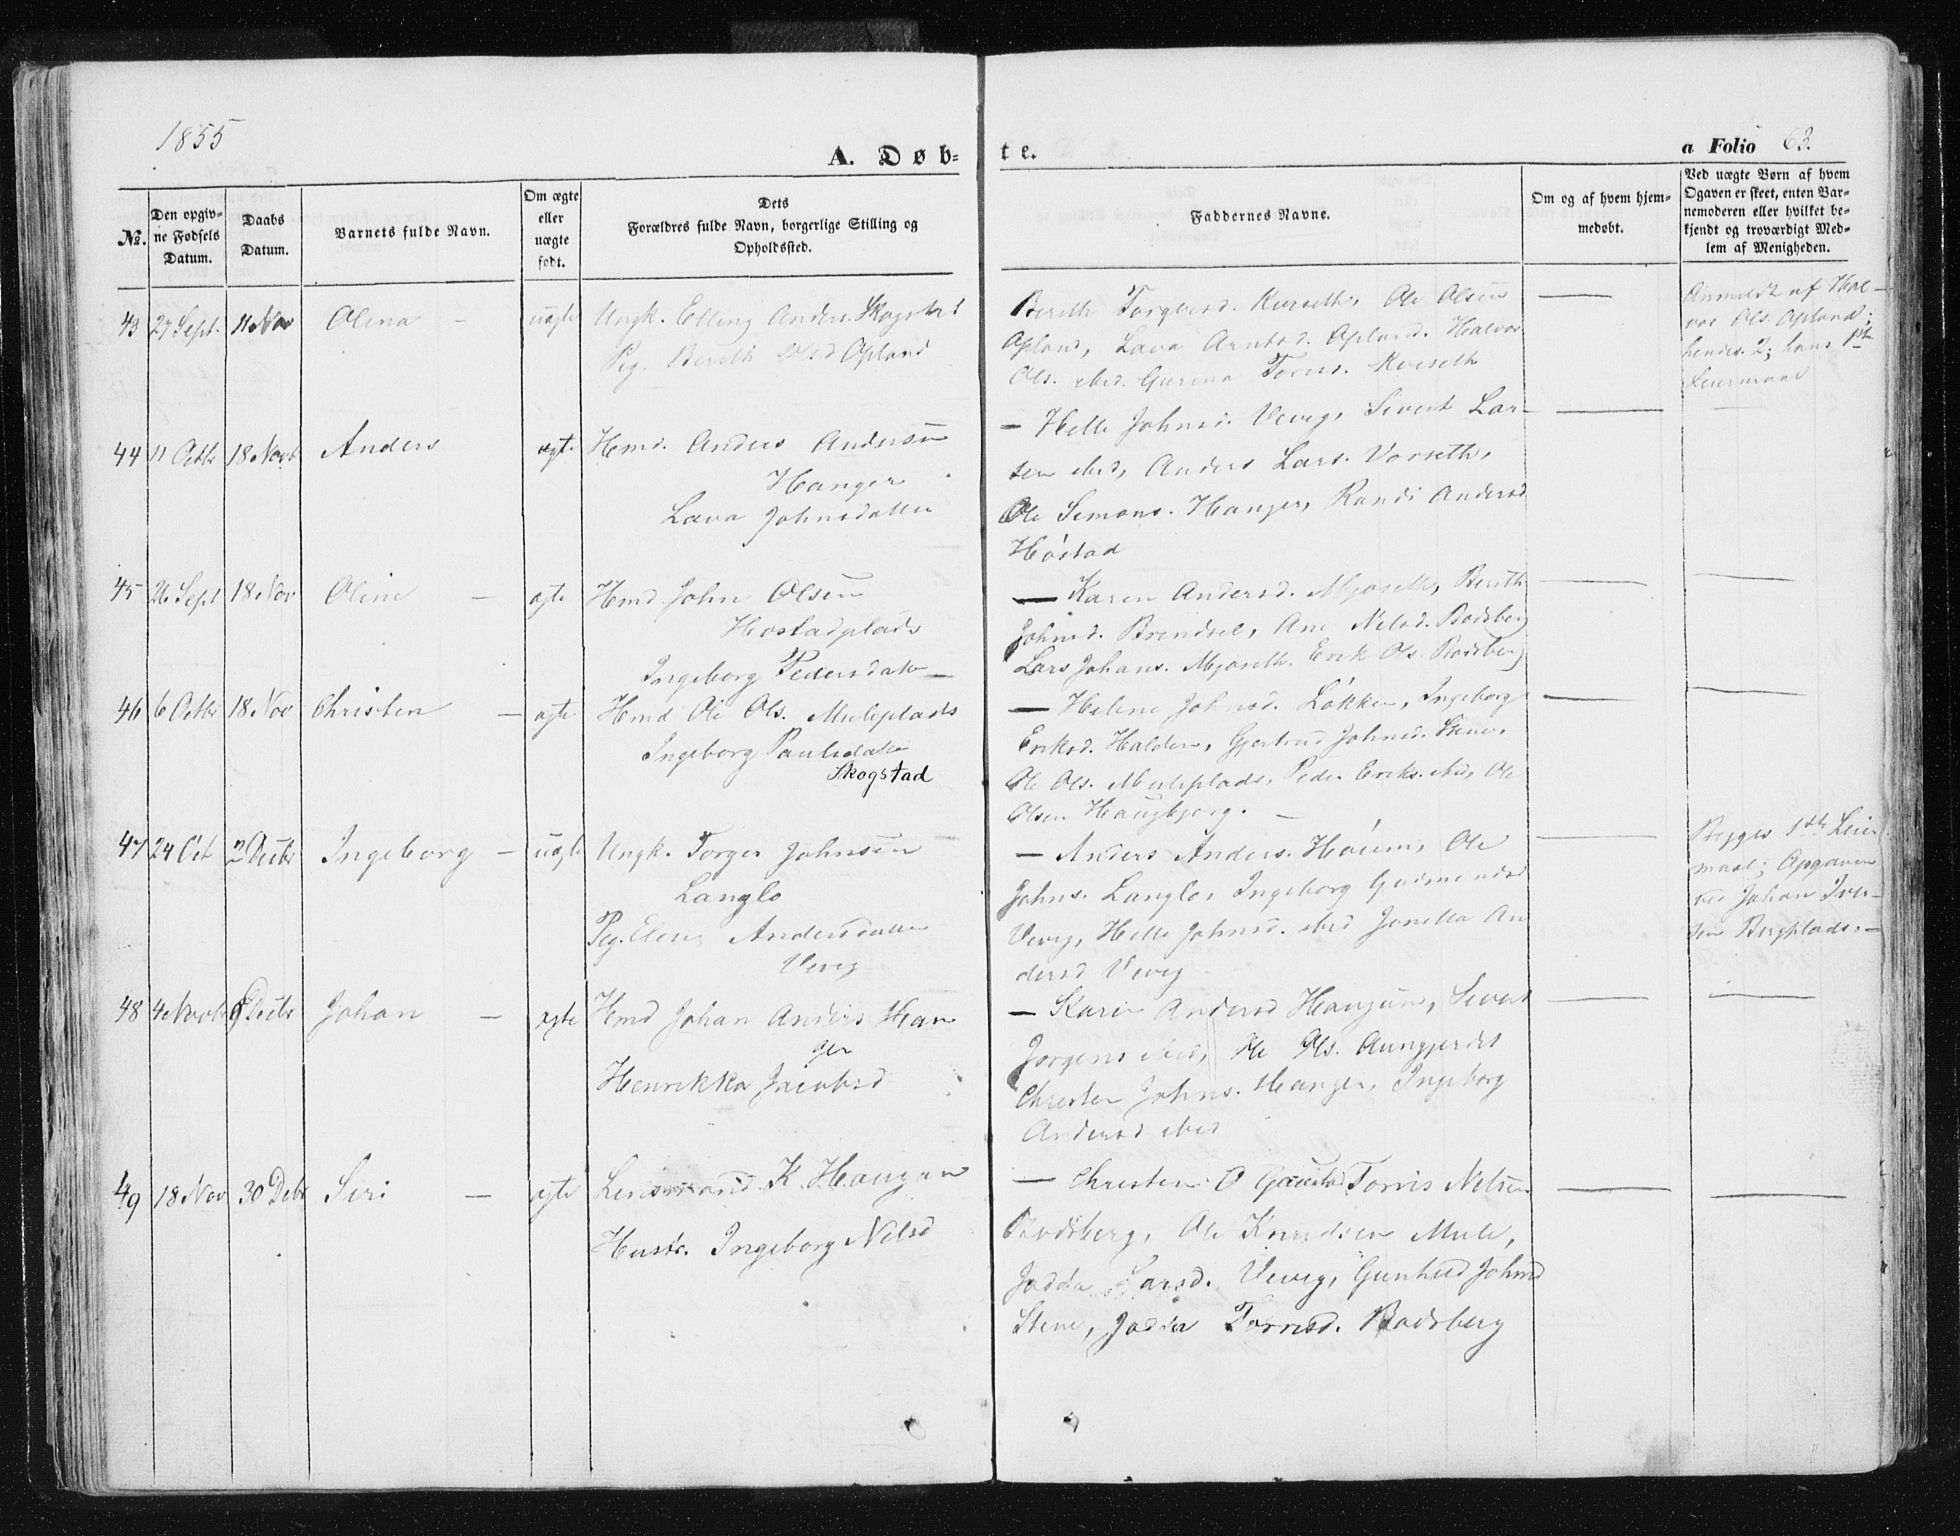 1855
A. Døb-
te.
a Folio 63.
No.
Den opgiv-
ne Fødsels
Datum.
Daabs
Datum.
Barnets fulde Navn.
Om ægte
eller
uægte
født.
Dets
Forældres fulde Navn, borgerlige Stilling og
Opholdssted.
Faddernes Navne.
Om og af hvem hjem-
medøbt.
Ved uægte Børn af hvem
Ogaven er skeet, enten Bar-
nemoderen eller hvilket be-
kjendt og troværdigt Med-
lem af Menigheden.
43 27 Sept. 11 Nov Olina - uægte Ungk. Elling Anders. Skogstad
Pig. Bereth Olsd Opland
Bereth Torgersd. Kverseth, Ole Olsen
Opland, Lava Arntsd. Opland. Halvor
Ols. ibid. Gurina Torers. Kverseth
Anmeldt af Hal-
vor Ols. Opland;
hendes 2; hans 1ste
Leiermaal
44 11 Octbr 18 Novb Anders ægte Hmd. Anders Andersen
Hanger
Lava Johnsdatter
- Helle Johnsd. Vevig, Sivert Lar-
sen ibid, Anders Lars. Vorseth,
Ole Simons. Hanger, Randi Andersd
Høstad
45 26 Sept 18 Nov Oline - ægte Hmd John Olsen
Hostadplads
Ingeborg Pedersdatr
- Karen Andersd. Mjøseth, Bereth
Johnsd. Brendsel, Ane Nelsd. Bodsberg
Lars Johans. Mjøseth. Erik Ols. Bodsberg
46 6 Octbr 18 Nov Christen - ægte Hmd Ole Ols. Muleplads
Ingeborg Paulsdatr
Skogstad
- Helene Johnsd. Løkken, Ingeborg
Eriksd. Halden, Gjertrud Johnsd. Stene,
Ole Ols. Muleplads, Peder Eriks. ibid, Ole
Olsen Haugbjørg. -
47 24 Oct 2 Decbr Ingeborg - uægte Ungk. Torger Johnsen
Langlo
Pig. Elen Andersdatter
Vevig
- Anders Anders. Høiem, Ole
Johns. Langlo, Ingeborg Gudmundsd
Vevig, Helle Johnsd. ibid Jonetta An
dersd Vevig
Begges 1ste Leier
maal; Opgaven
ved Johan Iver-
sen Bergplads. -
48 4 Novbr 9 Decbr Johan - ægte Hmd Johan Anders Han
ger
Henrikka Jacobsd
- Karen Andersd Haugum, Sivert
Jørgens ibid, Ole Ols. Aungjerdet
Christen Johns. Hanger, Ingeborg
Andersd ibid
49 18 Nov 30 Debr Siri - ægte Lensmand K Haugan
Hustr. Ingeborg Nilsd
- Christen O Gaustad Torris Nelsen
Bodsberg, Ole Knudsen Mule,
Jødda Larsd. Vevig, Gunhild Johnsd
Stene, Jødda Torresd. Bodsberg